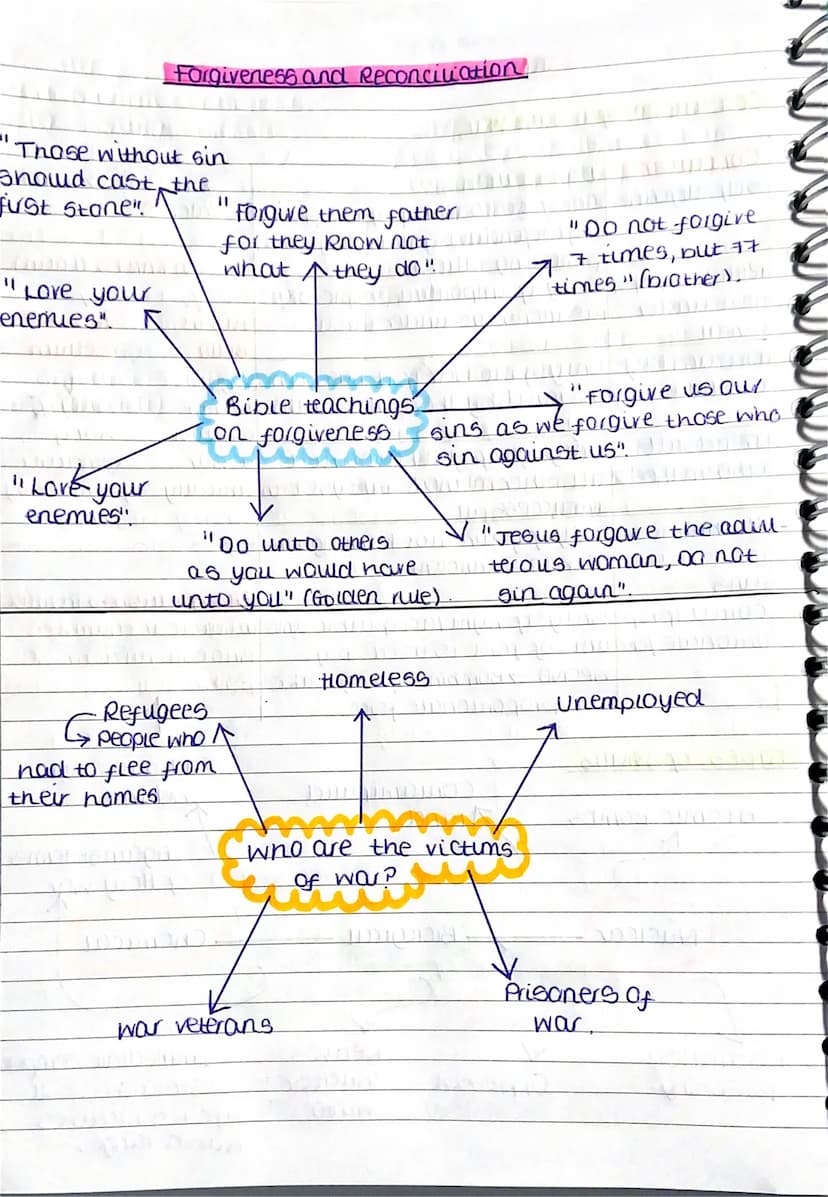 Forgiveness and Reconciliation
"Those without sin
should cast the
first stone".
"Forgive them father
for they know not
what they do".
"Do not forgive
7 times, but 77
times" (brother).
"Love your
enemies".
Bible teachings
on forgiveness
"Forgive us our
sins as we forgive those who
sin against us".
"Love your
enemies".
"Do unto others
as you would have
unto you" (Golden rule).
"Jesus forgave the adul-
terous woman, do not
sin again".
Homeless
Refugees
people who
had to flee from
their homes
unemployed
who are the victims
of war?
war veterans
Prisoners of
war.